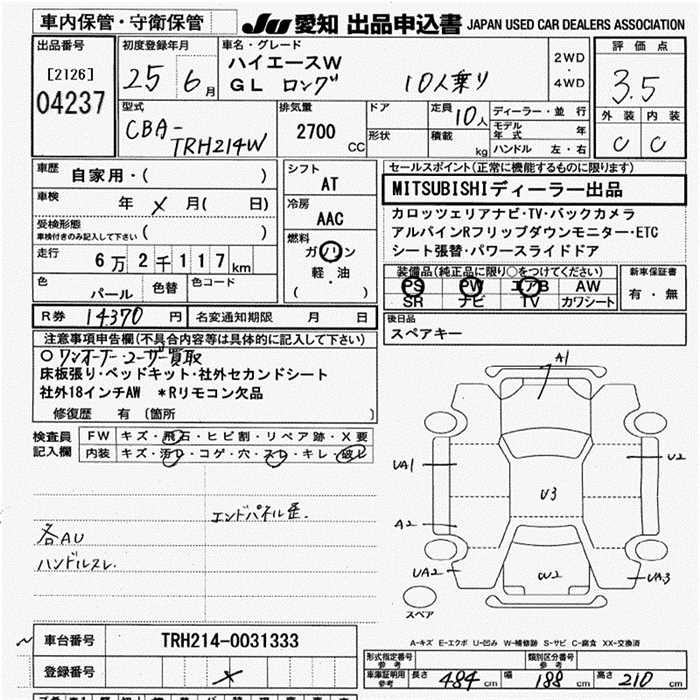 車内保管・守衛保管
JU 愛知 出品申込書 JAPAN USED CAR DEALERS ASSOCIATION
出品番号
[2126]
04237
初度登録年月
25 6月
車名・グレード
ハイエースW
GL ロング 10人乗り
2WD
・
4WD
評価点
3.5
外装 内装
C C
型式
CBA-
TRH214W
排気量
2700
CC
ドア
形状
定員 10人
積載 kg
ディーラー・並行
モデル年式 年
ハンドル 左・右
車歴
自家用・( )
車検
年 × 月( 日)
受検形態
車検付きのみ記入して下さい ( )
走行
6万2千117km
色
パール
色替
色コード
シフト
AT
冷房
AAC
燃料
ガソリン
軽・油
( )
セールスポイント(正常に機能するものに限ります)
MITSUBISHIディーラー出品
カロッツェリアナビ・TV・バックカメラ
アルパインRフリップダウンモニター・ETC
シート張替・パワースライドドア
装備品(純正品に限り○をつけてください)
PS PW エアB AW
SR ナビ TV カワシート
新車保証書
有・無
R券 14370円
名変通知期限 月 日
後日品
スペアキー
注意事項申告欄(不具合内容等は具体的に記入して下さい)
○ワンオーナー・ユーザー買取
床板張り・ベッドキット・社外セカンドシート
社外18インチAW *Rリモコン欠品
修復歴 有 〔箇所 〕
検査員
記入欄
FW キズ・飛石・ヒビ割・リペア跡・X要
内装 キズ・汚レ・コゲ・穴・スレ・キレ・破レ
エンドパネル歪.
各AU
ハンドルスレ.
A1
UA1
U2
U3
A2
UA2
W2
UA3
スペア
A-キズ E-エクボ U-凹み W-補修跡 S-サビ C-腐食 XX-交換済
車台番号 TRH214-0031333
登録番号 ×
形式指定番号
参考
類別区分番号
参考
車庫証明用
参考
長さ 484 cm 幅 188 cm 高さ 210 cm